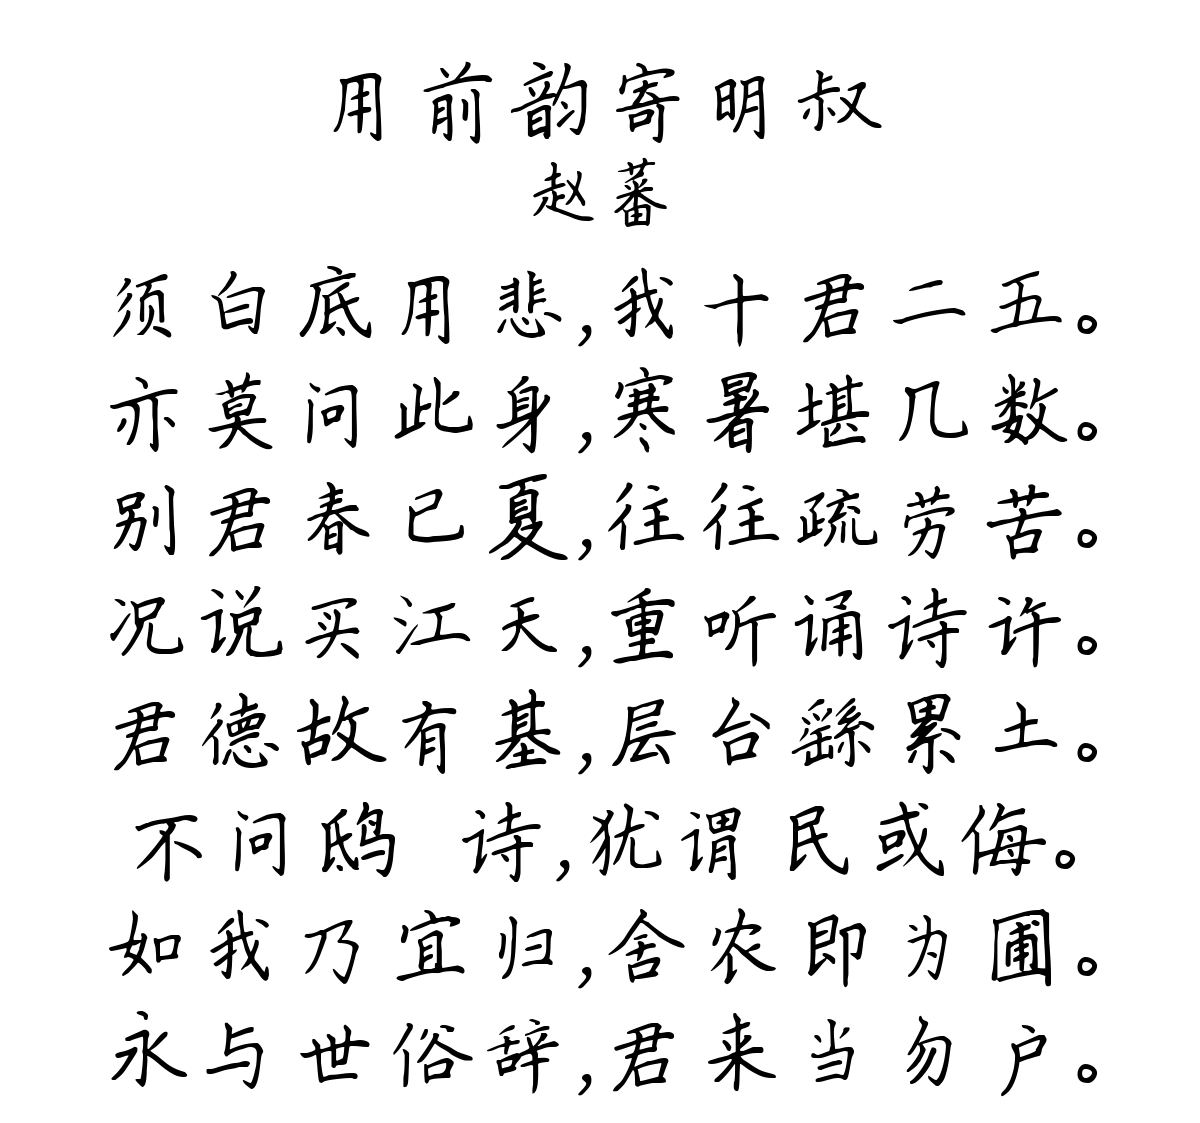 用前韵寄明叔
赵蕃
须白底用悲,我十君二五。
亦莫问此身,寒暑堪几数。
别君春已夏,往往疏劳苦。
况说买江天,重听诵诗许。
君德故有基,层台繇累土。
不问鸱 诗,犹谓民或侮。
如我乃宜归,舍农即为圃。
永与世俗辞,君来当勿户。